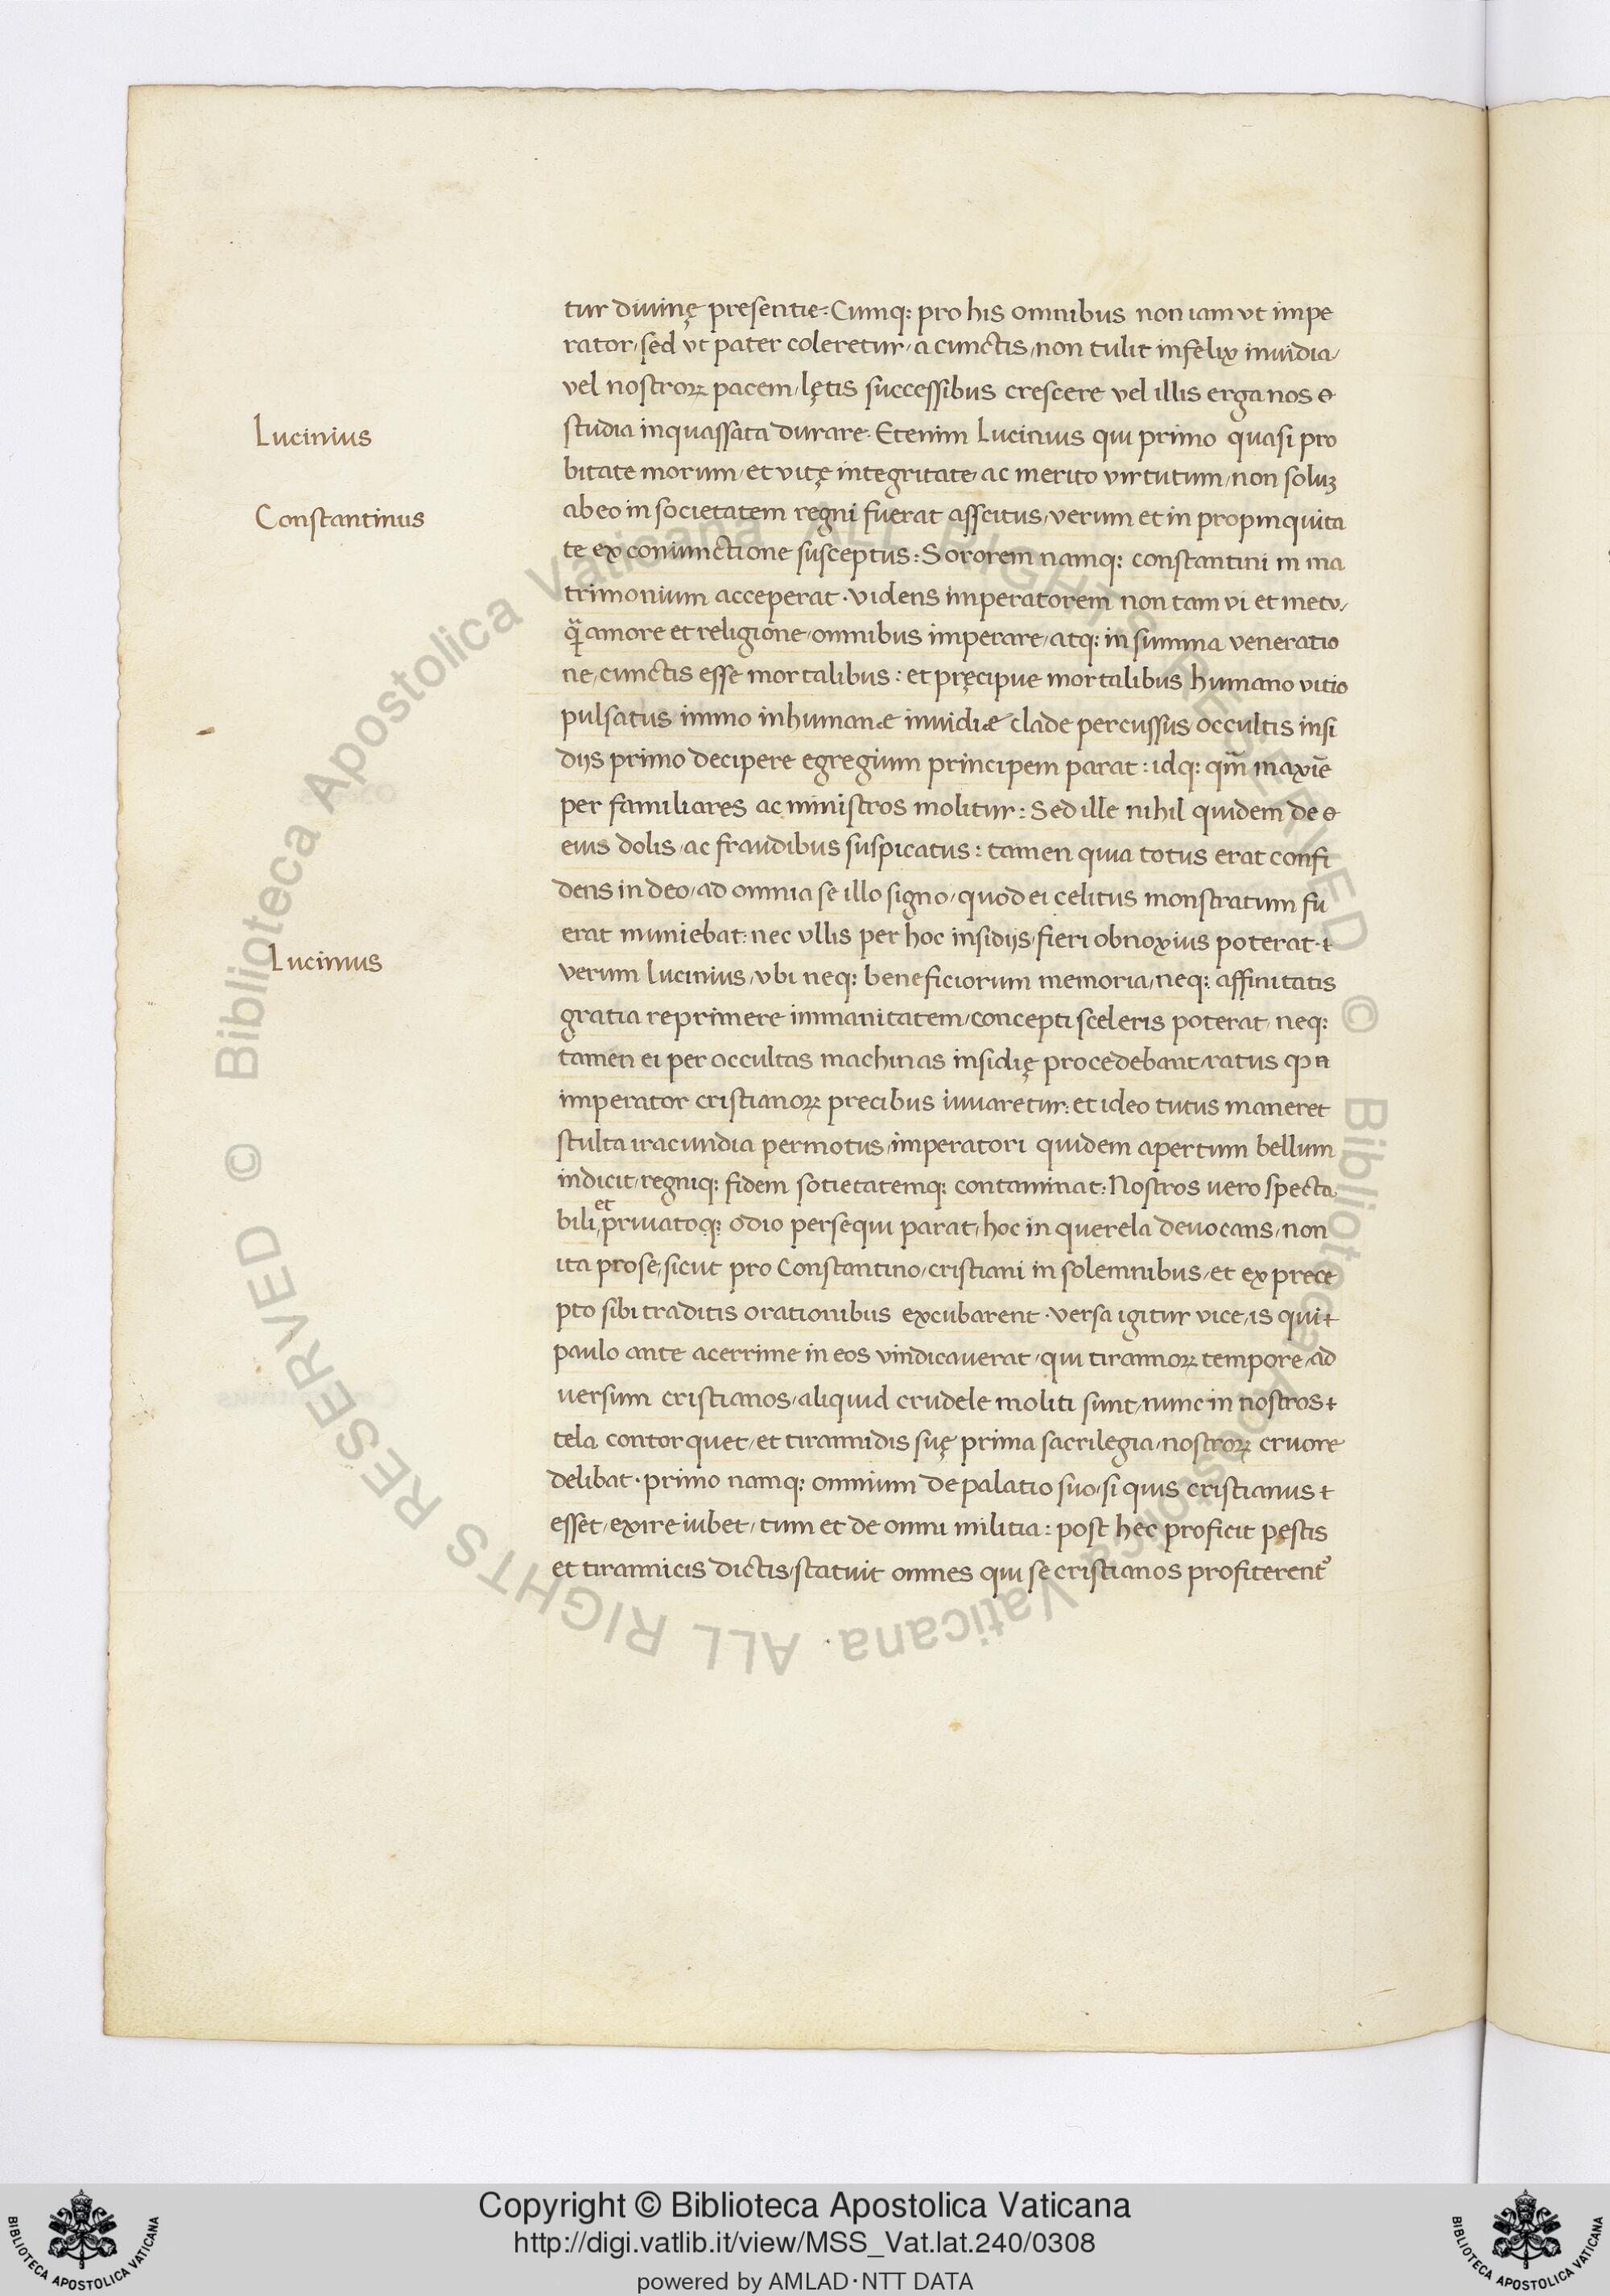 tur diuinę presentie: Cumq: pro his omnibus non iam vt impe
rator, sed vt pater coleretur, a cunctis, non tulit infelix inuidia,
vel nostroꝝ pacem, lętis successibus crescere vel illis erga nos
studia inquassata durare. Etenim Lucinius qui primo quasi pro
bitate morum, et vitę integritate, ac merito virtutum, non soluꝫ
ab eo in societatem regni fuerat asscitus, verum et in propinquita
te ex coniunctione susceptus: Sororem namq: constantini in ma
trimonium acceperat. videns imperatorem non tam vi et metu,
q̃ amore et religione, omnibus imperare, atq: in summa veneratio
ne, cunctis esse mortalibus: et pręcipue mortalibus humano vitio
pulsatus immo inhumanæ inuidiæ clade percussus, occultis insi
dijs primo decipere egregium principem parat: idq: qm̃ maxiē
per familiares ac ministros molitur: Sed ille nihil quidem de
eius dolis, ac fraudibus suspicatus: tamen quia totus erat confi
dens in deo, ad omnia se illo signo, quod ei celitus monstratum fu
erat muniebat: nec vllis per hoc insidijs, fieri obnoxius poterat.
verum lucinius, vbi neq: beneficiorum memoria, neq: affinitatis
gratia reprimere immanitatem, concepti sceleris poterat, neq:
tamen ei per occultas machinas insidię procedebant, ratus ꝙ
imperator cristianoꝝ precibus iuuaretur: et ideo tutus maneret
stulta iracundia permotus, imperatori quidem apertum bellum
indicit, regniq: fidem sotietatemq: contaminat: Nostros uero specta
bili, et priuatoq: odio persequi parat, hoc in querela deuocans, non
ita pro se, sicut pro Constantino, cristiani in solemnibus, et ex prece
pto sibi traditis orationibus excubarent. versa igitur vice, is qui
paulo ante acerrime in eos vindicauerat, qui tirannoꝝ tempore, ad
uersum cristianos, aliquid crudele moliti sunt, nunc in nostros
tela contorquet, et tirannidis suę prima sacrilegia, nostroꝝ cruore
delibat. primo namq: omnium de palatio suo, si quis cristianus
esset, exire iubet, tum et de omni militia: post hec proficit pestis
et tirannicis dictis, statuit omnes qui se cristianos profiterent᷑
Lucinius
Constantinus
Lucinius
© Biblioteca Apostolica Vaticana ALL RIGHTS RESERVED
© Biblioteca Apostolica Vaticana ALL RIGHTS RESERVED
Copyright © Biblioteca Apostolica Vaticana
http://digi.vatlib.it/view/MSS_Vat.lat.240/0308
powered by AMLAD·NTT DATA
BIBLIOTECA APOSTOLICA VATICANA
BIBLIOTECA APOSTOLICA VATICANA